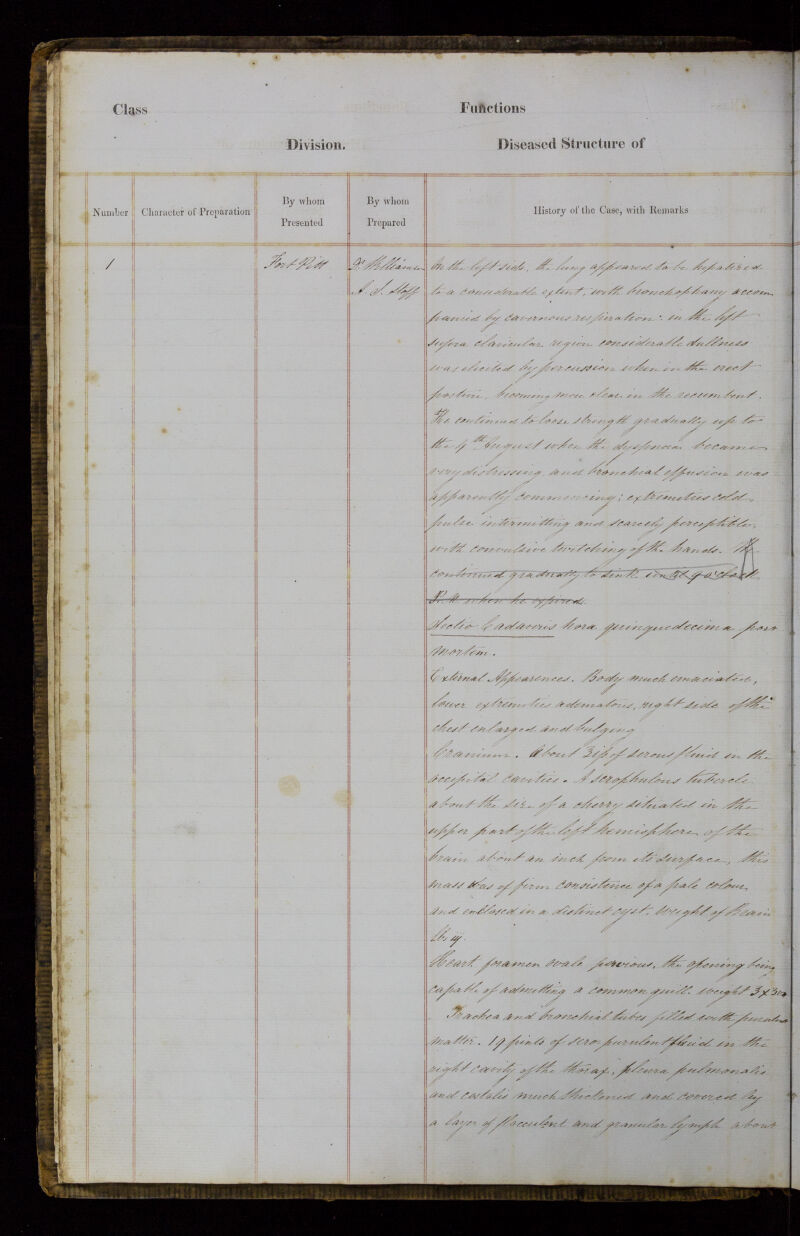 Class Functions
Division. Diseased Structure of
Number Character of Preparation By whom Presented By whom Prepared History of the Case, with Remarks
1 Fort Pitt Dr. Williamson On the left side, the lung appeared to be hepatized
A. S. Staff to a considerable extent, with bronchophany accom
panied by cavernous respiration. in the left
supra clavicular region considerable dullness
was elicited by percussion when in the erect
position, becoming more clear in the recumbent.
He continued to loose strength gradually up to
the 9th August when the dyspnoea became
very distressing and bronchial effusion was
apparently commencing; extremities cold
pulse intermitting and scarcely perceptible.
with convulsive twitching of the hands. He
continued gradually to sink until 9 o'clock
P. M when he expired.
Sectio Cadaveris hora quinquedecima post
mortem.
External Appearances. Body much emaciated,
lower extremities œdematous, right side of the
chest enlarged and bulging
Cranium. About of serous fluid in the
occipital cavities. A scrophulous tubercle
about the size of a cherry situated in the
upper part of the left hemisphere of the
brain about an inch from its surface, this
mass was of firm consistence of a pale colour
and enclosed in a distinct cyst. Weight of Brain
lb. iij.
Heart foramen ovale pervious, the opening being
capable of admitting a common quill. weight
Trachea and bronchial tubes filled with purulent
matter. 19 pints of sero purulent fluid in the
right cavity of the thorax, pleura pulmonalis
and costalis much thickened and covered by
a layer of flocculent and granular lymph about